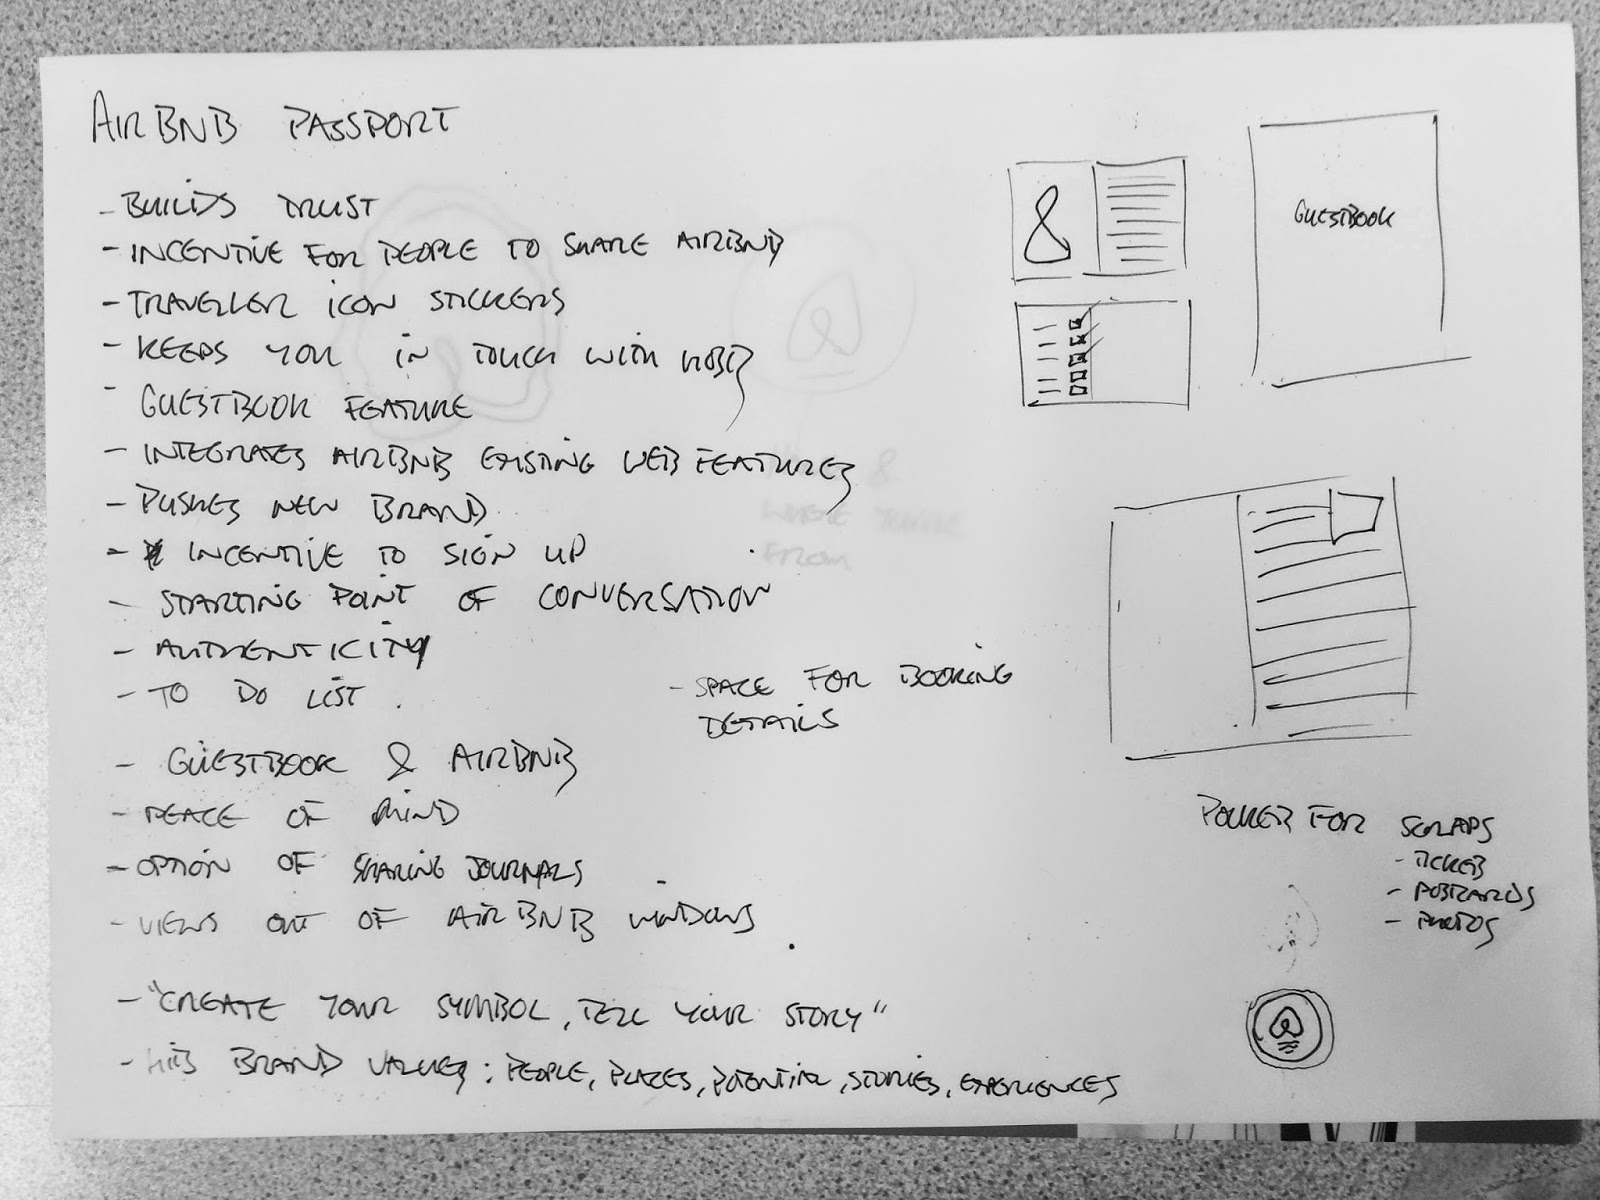 AIRBNB PASSPORT
- BUILDS TRUST
- INCENTIVE FOR PEOPLE TO SHARE AIRBNB
- TRAVELLER ICON STICKERS
- KEEPS YOU IN TOUCH WITH HOSTS
- GUESTBOOK FEATURE
- INTEGRATES AIRBNB EXISTING WEB FEATURES
- PUSHES NEW BRAND
- INCENTIVE TO SIGN UP
- STARTING POINT OF CONVERSATION
- AUTHENTICITY
- TO DO LIST
- SPACE FOR BOOKING
DETAILS
- GUESTBOOK & AIRBNB
- PEACE OF MIND
- OPTION OF SHARING JOURNALS
- VIEWS OUT OF AIRBNB WINDOWS
- "CREATE YOUR SYMBOL, TELL YOUR STORY"
- HITS BRAND VALUES: PEOPLE, PLACES, POTENTIAL, STORIES, EXPERIENCES
&
GUESTBOOK
POCKET FOR SCRAPS
- TICKETS
- POSTCARDS
- PHOTOS
&
WHERE
FROM